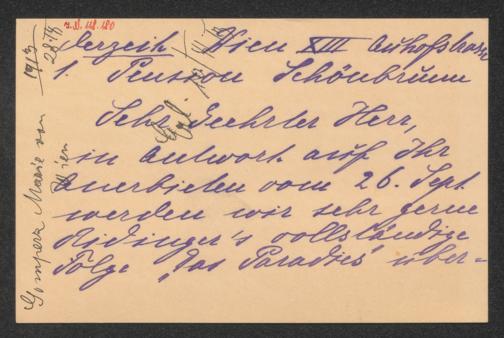 z. B. 118.180
derzeit Wien XIII Auhofstrasse
1. Pension Schönbrunn
Sehr Geehrter Herr,
in Antwort auf Ihr
Anerbieten vom 26. Sept.
werden wir sehr gerne
Ridinger's vollständige
Folge „Das Paradies" über-
Gomperz Marie von
Wien
1913
28/9